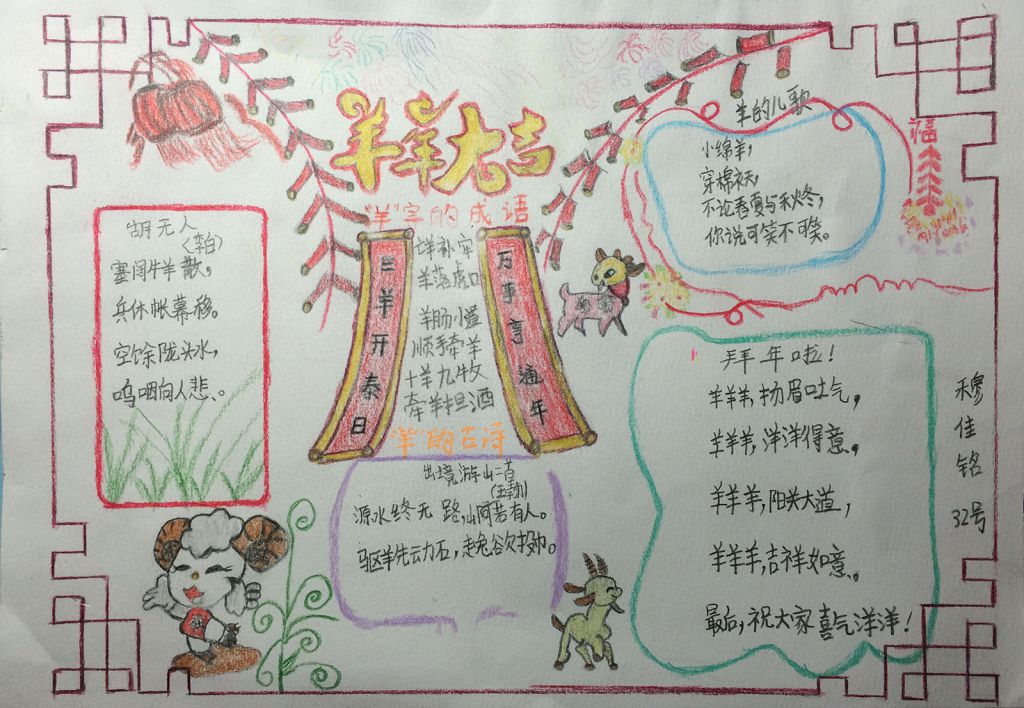 羊羊大吉
"羊"字的成语
亡羊补牢
羊落虎口
羊肠小道
顺手牵羊
十羊九牧
牵羊担酒
三羊开泰日
万事亨通年
胡无人
(李白)
塞阔牛羊散,
兵休帐幕移。
空馀陇头水,
呜咽向人悲。
"羊"的古诗
出境游山二首
(王勃)
源水终无路,山阿若有人。
驱羊先动石,走兔欲投巾。
羊的儿歌
小绵羊,
穿棉袄,
不论春夏与秋冬,
你说可笑不可笑。
福
拜年啦!
羊羊羊,扬眉吐气,
羊羊羊,洋洋得意。
羊羊羊,阳关大道,
羊羊羊,吉祥如意。
最后,祝大家喜气洋洋!
穆佳铭 32号